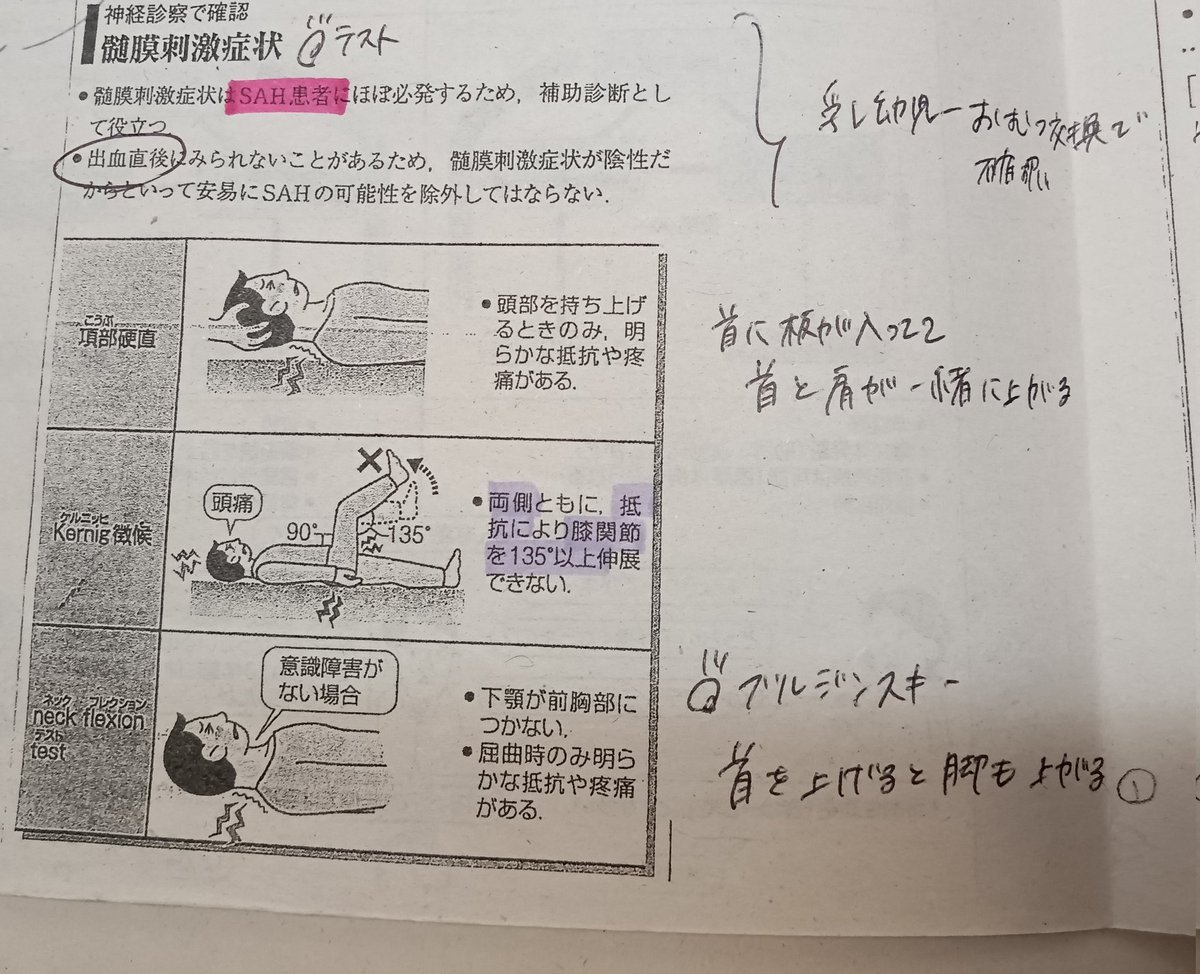 神経診察で確認
髄膜刺激症状
テスト
•髄膜刺激症状はSAH患者にほぼ必発するため，補助診断とし
て役立つ
•出血直後にみられないことがあるため，髄膜刺激症状が陰性だ
からといって安易にSAHの可能性を除外してはならない.
乳幼児ーおむつ交換で
確認
こうぶ
項部硬直
•頭部を持ち上げ
るときのみ，明
らかな抵抗や疼
痛がある.
首に板が入ってて
首と肩が一緒に上がる
ケルニッヒ
Kernig徴候
頭痛
90°
135°
•両側ともに，抵
抗により膝関節
を135°以上伸展
できない.
ネック フレクション
neck flexion
テスト
test
意識障害が
ない場合
•下顎が前胸部に
つかない.
•屈曲時のみ明ら
かな抵抗や疼痛
がある.
ブルジンスキー
首を上げると脚も上がる